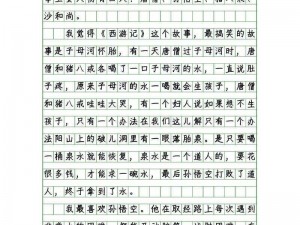 沙和尚。
我觉得《西游记》这个故事，最搞笑的故
事是子母河怀胎，有一天唐僧过子母河时，唐
僧和猪八戒各喝了一口子母河的水，一直说肚
子疼，原来子母河的水喝了会生出孩子，唐僧
和猪八戒哇哇大哭，有一个妇人说如果想不生
孩子，只有一个办法在我们这儿解只有一个办
法阳山上的破儿洞里有一眼落胎泉。是只要喝
一桶泉水就能恢复，泉水是一个道人的，要花
很多钱，才能求一碗水，最后孙悟空打败了道
人，终于拿到了水。
我最喜欢孙悟空。他在取经路上每次遇到